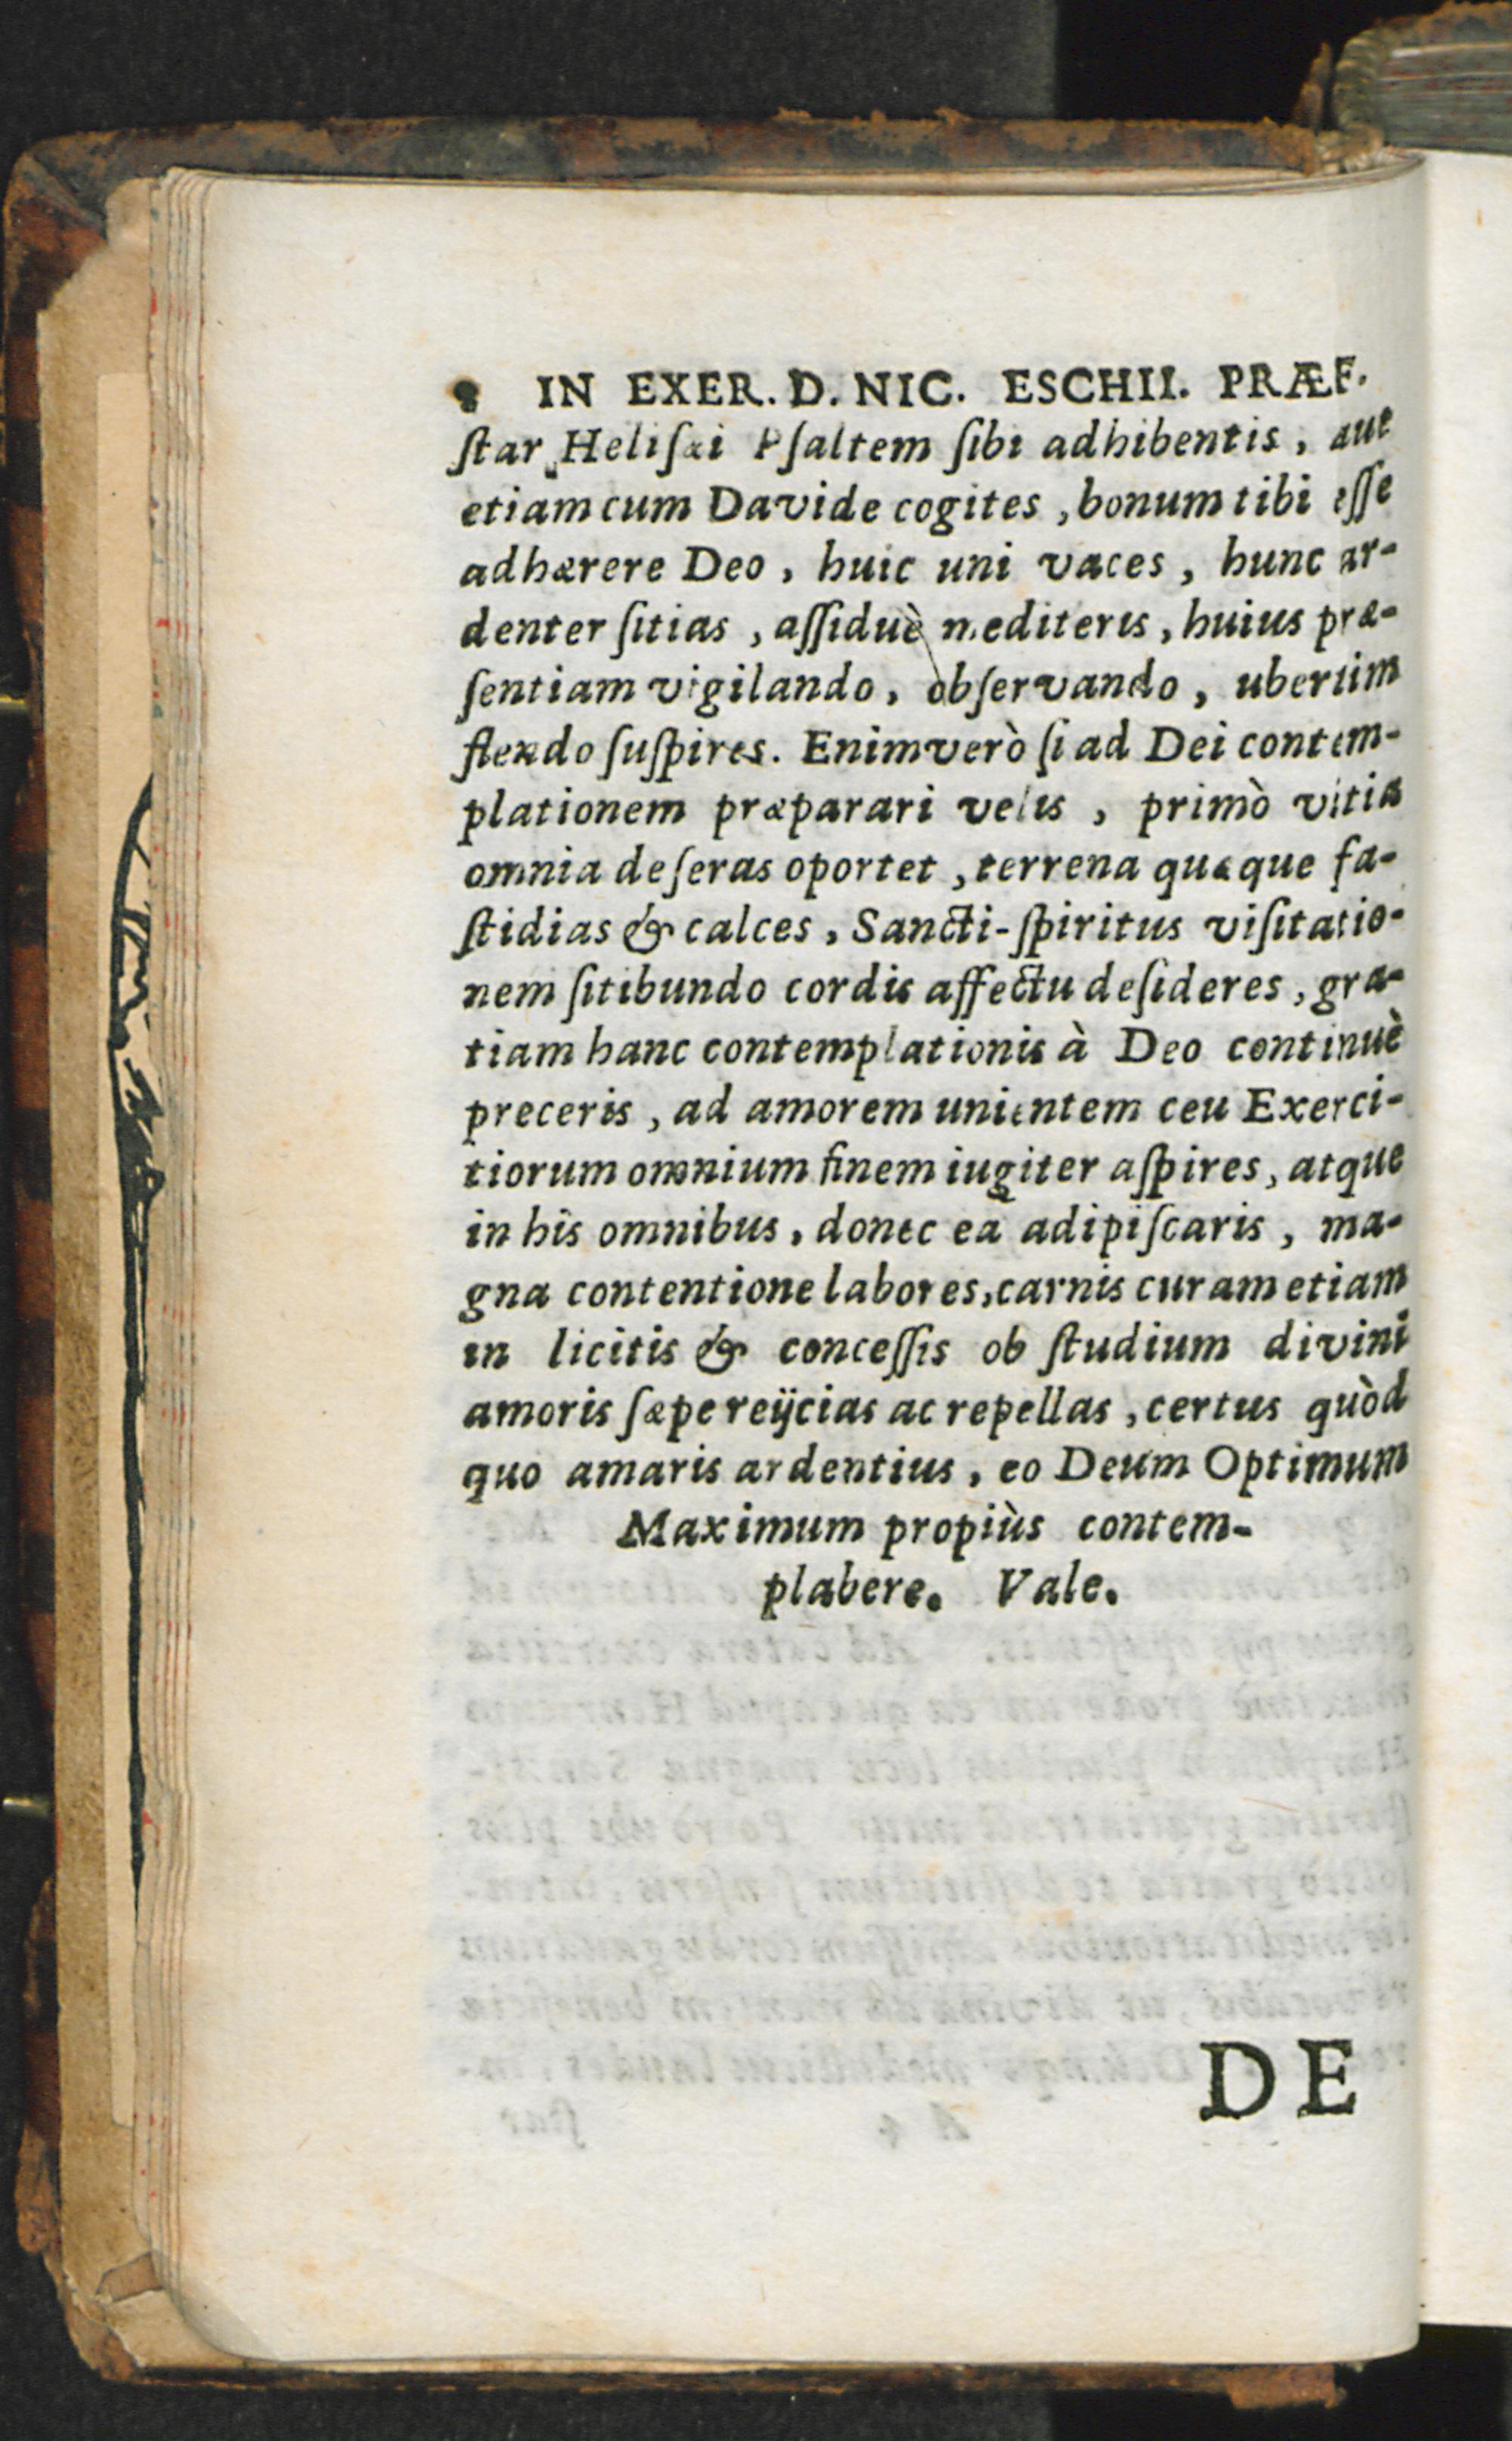 8 IN EXER. D. NIC. ESCHII. PRÆF.
ſtar Heliſæi Pſaltem ſibi adhibentis, aut
etiam cum Davide cogites, bonum tibi eſſe
adhærere Deo, huic uni vaces, hunc ar-
denter ſitias, aſſiduè mediteris, huius præ-
ſentiam vigilando, obſervando, ubertim
flendo ſuſpires. Enimverò ſi ad Dei contem-
plationem præparari velis, primò vitia
omnia deſeras oportet, terrena quæque fa-
ſtidias & calces, Sancti-ſpiritus viſitatio-
nem ſitibundo cordis affectu deſideres, gra-
tiam hanc contemplationis à Deo continuè
preceris, ad amorem unientem ceu Exerci-
tiorum omnium finem iugiter aſpires, atque
in his omnibus, donec ea adipiſcaris, ma-
gna contentione labores, carnis curam etiam
in licitis & conceſſis ob ſtudium divini
amoris ſæpe reijcias ac repellas, certus quòd
quo amaris ardentius, eo Deum Optimum
Maximum propiùs contem-
plabere. Vale.
DE